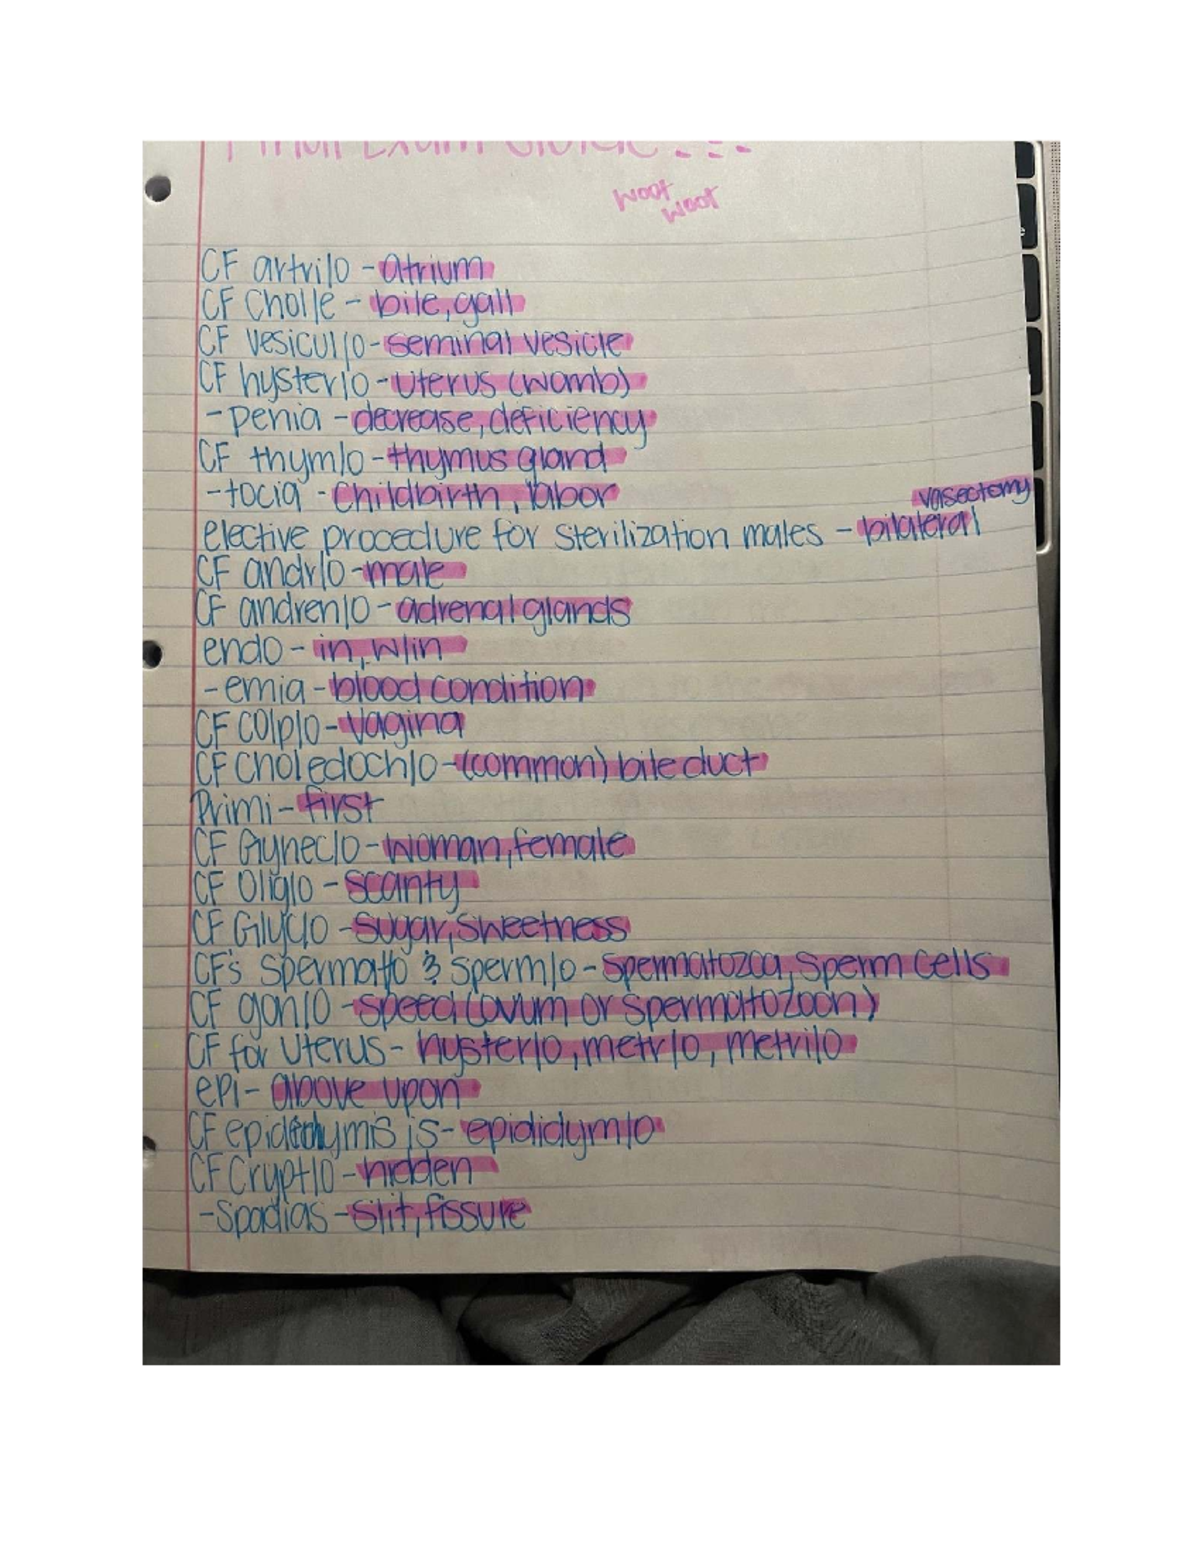 Final Exam Guide :
woot
woot
CF artri|o - atrium
CF Chol|e - bile, gall
CF vesicul|o - seminal vesicle
CF hyster|o - uterus (womb)
-penia - decrease, deficiency
CF thym|o - thymus gland
-tocia - Childbirth, labor
vasectomy
elective procedure for sterilization males - bilateral
CF andr|o - male
CF andren|o - adrenal glands
endo - in, w/in
-emia - blood condition
CF colp|o - vagina
CF choledoch|o - (common) bile duct
Primi - first
CF Gynec|o - woman, female
CF Olig|o - scanty
CF Glyc|o - sugar, sweetness
CF's spermat|o & sperm|o - spermatozoa, sperm cells
CF gon|o - speed (ovum or spermatozoon)
CF for uterus - hyster|o, metr|o, metri|o
epi - above upon
CF epididymis is - epididym|o
CF Crypt|o - hidden
-spadias - slit, fissure